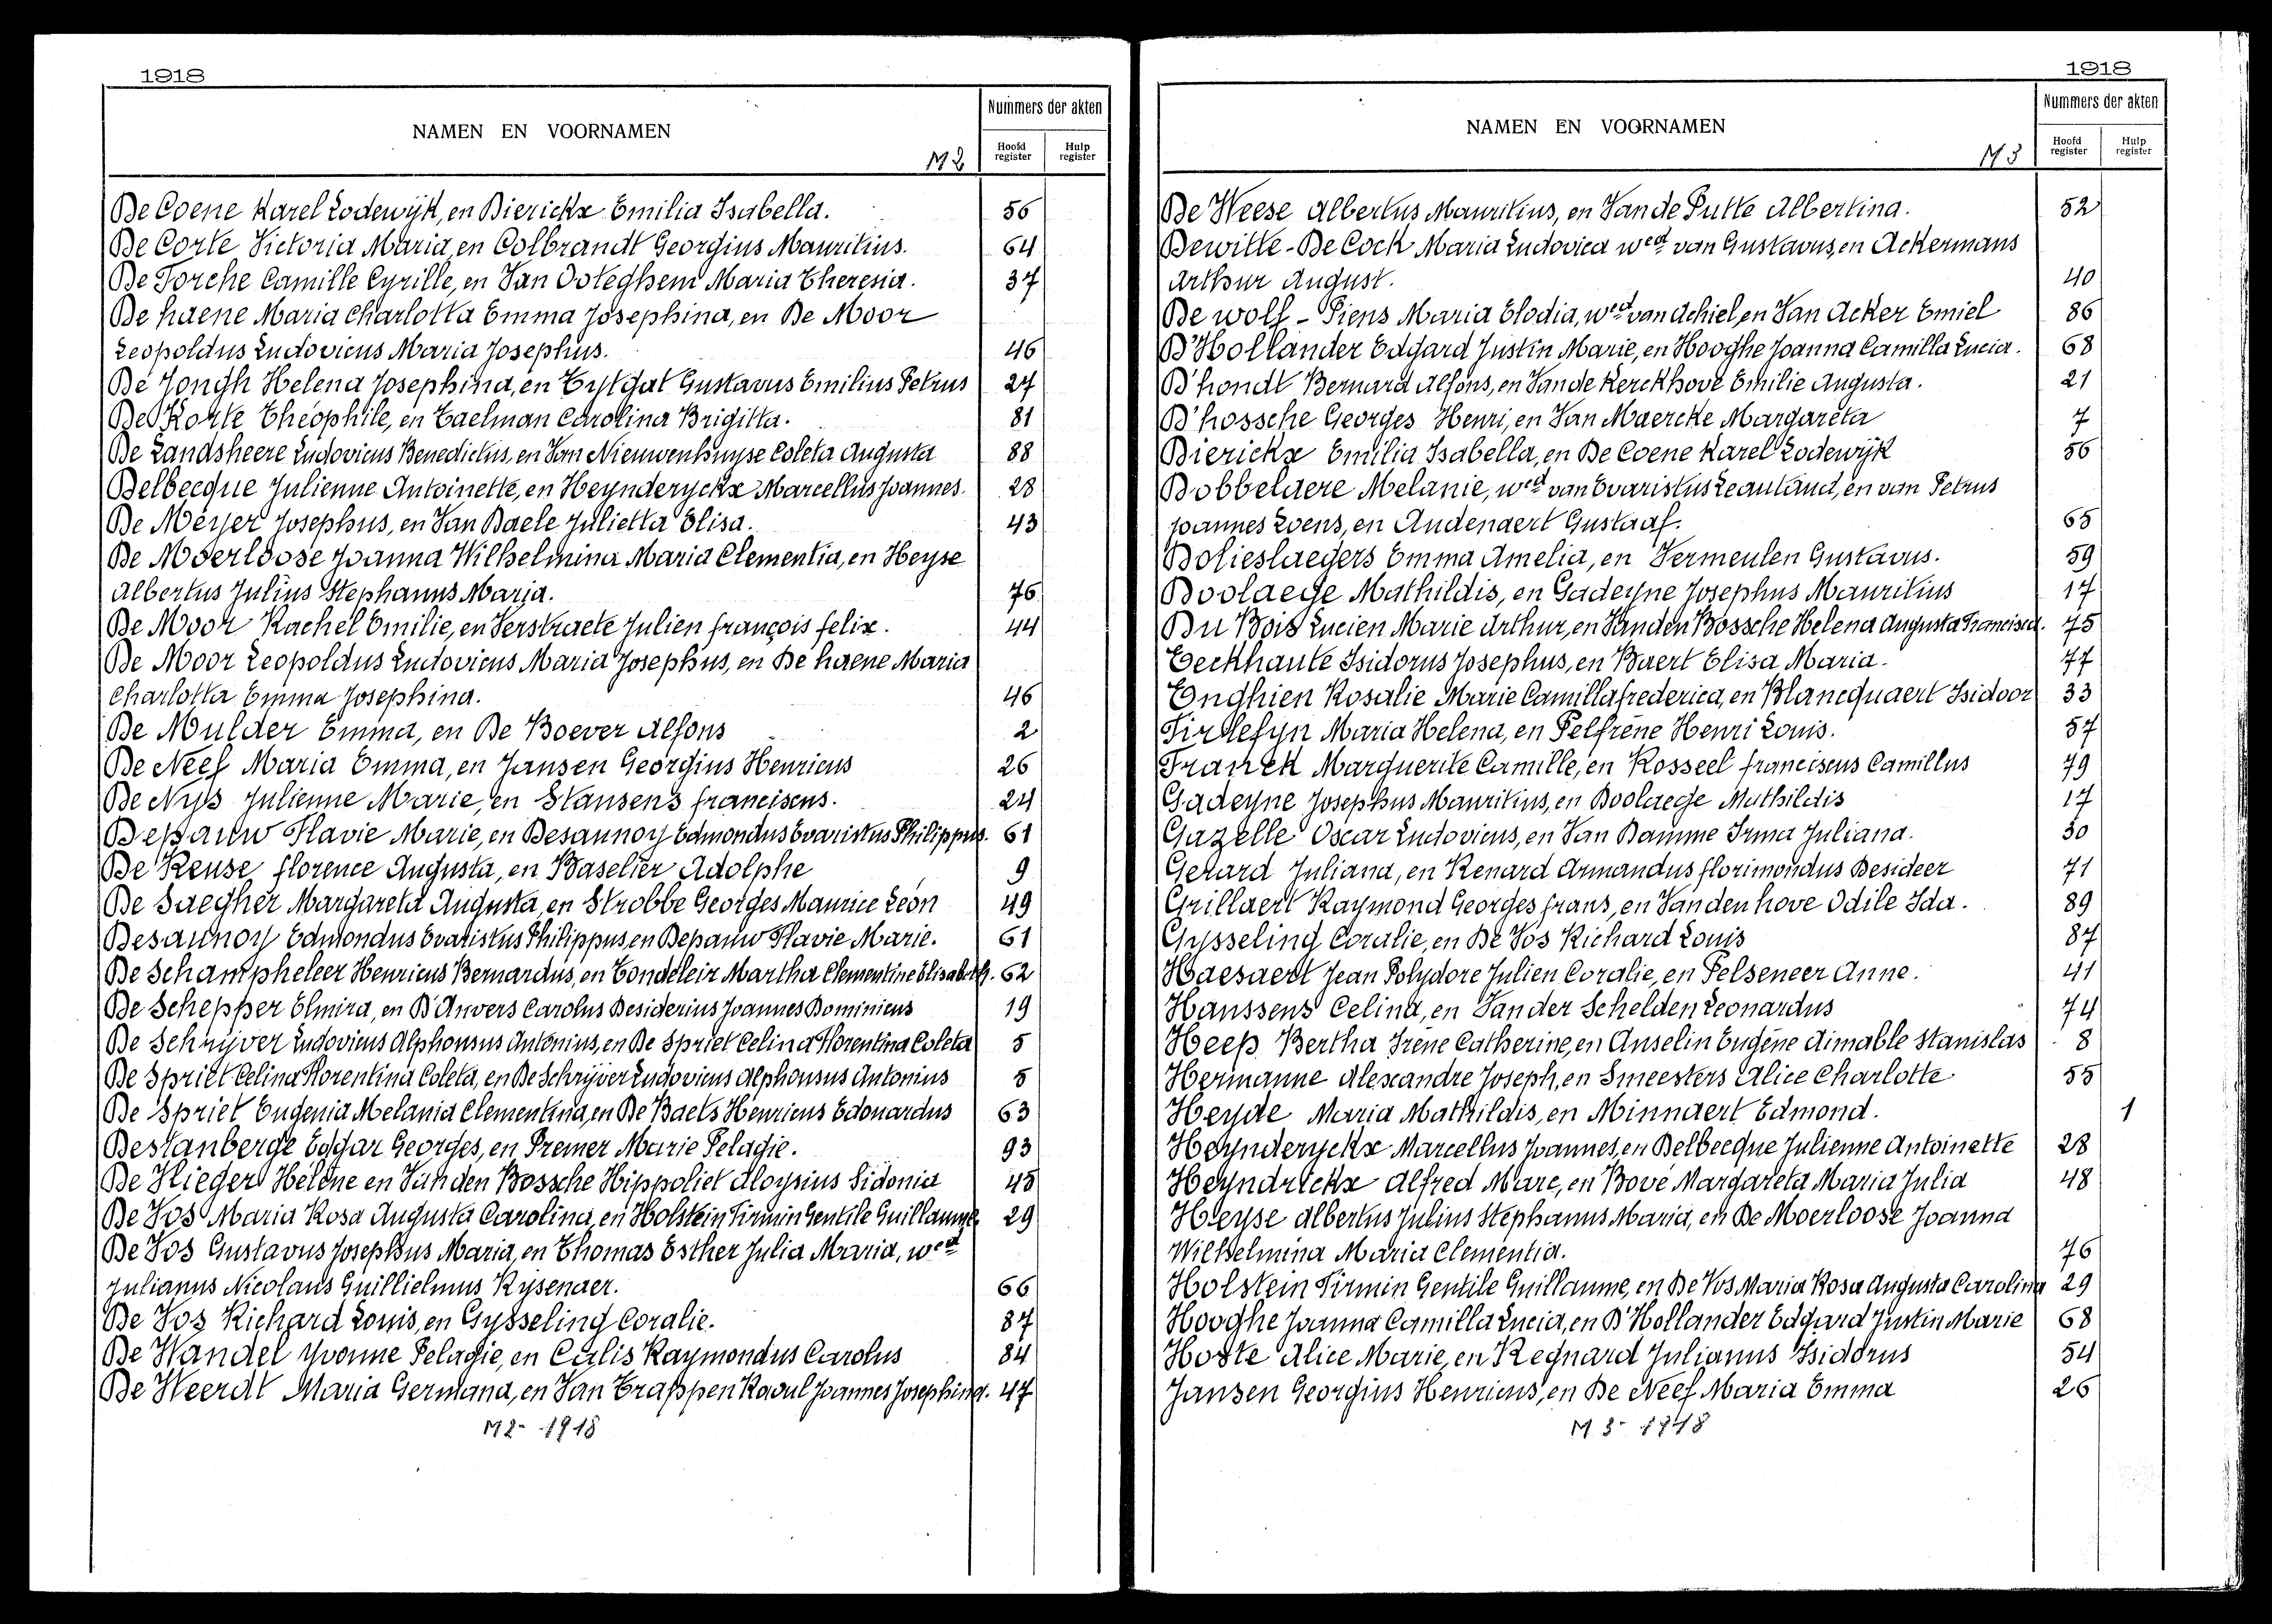 1918
NAMEN EN VOORNAMEN
M2
Nummers der akten
Hoofd register
Hulp register
De Coene Karel Lodewijk, en Dierickx Emilia Isabella. 56
De Corte Victoria Maria, en Colbrandt Georgius Mauritius. 64
De Forche Camille Cyrille, en Van Ooteghem Maria Theresia. 37
De haene Maria Charlotta Emma Josephina, en De Moor
Leopoldus Ludovicus Maria Josephus. 46
De Jongh Helena Josephina, en Eytgat Gustavus Emilius Petrus 27
De Korte Théophile, en Taelman Carolina Brigitta. 81
De Landsheere Ludovicus Benedictus, en Van Nieuwenhuyse Coleta Augusta 88
Delbecque Julienne Antoinette, en Heynderyckx Marcellus Joannes. 28
De Meyer Josephus, en Van Daele Julietta Elisa. 43
De Moerloose Joanna Wilhelmina Maria Clementia, en Heyse
Albertus Julius Stephanus Maria. 76
De Moor Rachel Emilie, en Verstraete Julien françois felix. 44
De Moor Leopoldus Ludovicus Maria Josephus, en De haene Maria
Charlotta Emma Josephina. 46
De Mulder Emma, en De Boever Alfons 2
De Neef Maria Emma, en Jansen Georgius Henricus 26
De Nys Julienne Marie, en Stansens franciscus. 24
Depauw Flavie Marie, en Desaunoy Edmondus Evaristus Philippus. 61
De Reuse florence Augusta, en Baselier Adolphe 9
De Saegher Margareta Augusta, en Strobbe Georges Maurice Léon 49
Desaunoy Edmondus Evaristus Philippus, en Depauw Flavie Marie. 61
De Schampheleer Henricus Bernardus, en Tondeleir Martha Clementine Elisabeth. 62
De Schepper Elmira, en D'Anvers Carolus Desiderius Joannes Dominicus 19
De Schrijver Ludovicus Alphonsus Antonius, en De Spriet Celina Florentina Coleta 5
De Spriet Celina Florentina Coleta, en De Schrijver Ludovicus Alphonsus Antonius 5
De Spriet Eugenia Melania Clementina, en De Baets Henricus Edouardus 63
Destanberge Edgar Georges, en Premer Marie Pelagie. 93
De Vlieger Hélène en Vanden Bossche Hippoliet Aloysius Sidonia 45
De Vos Maria Rosa Augusta Carolina, en Holstein Firmin Gentile Guillaume 29
De Vos Gustavus Josephus Maria, en Thomas Esther Julia Maria, wed
Julianus Nicolaus Guillielmus Rysenaer. 66
De Vos Richard Louis, en Gysseling Coralie. 87
De Wandel Yvonne Pelagie, en Calis Raymondus Carolus 84
De Weerdt Maria Germana, en Van Trappen Raoul Joannes Josephina. 47
M2 - 1918
1918
NAMEN EN VOORNAMEN
M3
Nummers der akten
Hoofd register
Hulp register
De Weese Albertus Mauritius, en Van de Putte Albertina. 52
Dewitte - De Cock Maria Ludovica wed van Gustavus, en Ackermans
Arthur August. 40
De wolf - Piens Maria Elodia, wed van Achiel, en Van Acker Emiel 86
D'Hollander Edgard Justin Marie, en Hooghe Joanna Camilla Lucia. 68
D'hondt Bernard Alfons, en Van de Kerckhove Emilie Augusta. 21
D'hossche Georges Henri, en Van Maercke Margareta 7
Dierickx Emilia Isabella, en De Coene Karel Lodewijk 56
Dobbelaere Melanie, wed van Evaristus Leauland, en van Petrus
Joannes Loens, en Audenaert Gustaaf. 65
Dolieslaegers Emma Amelia, en Vermeulen Gustavus. 59
Doolaege Mathildis, en Gadeyne Josephus Mauritius 17
Du Bois Lucien Marie Arthur, en Vanden Bossche Helena Augusta Francisca. 75
Eeckhaute Isidorus Josephus, en Baert Elisa Maria. 77
Enghien Rosalie Marie Camilla frederica, en Blancquaert Isidoor 33
Firlefyn Maria Helena, en Pelfrène Henri Louis. 57
Franck Marguerite Camille, en Rosseel franciscus Camillus 79
Gadeyne Josephus Mauritius, en Doolaege Mathildis 17
Gazelle Oscar Ludovicus, en Van Damme Irma Juliana. 30
Gerard Juliana, en Renard Armandus florimondus Desideer 71
Grillaert Raymond Georges frans, en Vanden hove Odile Ida. 89
Gysseling Coralie, en De Vos Richard Louis 87
Haesaert Jean Polydore Julien Coralie, en Pelseneer Anne. 41
Hanssens Celina, en Van der Schelden Leonardus 74
Heep Bertha Irène Catherine, en Anselin Eugène Aimable Stanislas 8
Hermanne Alexandre Joseph, en Smeesters Alice Charlotte 55
Heyde Maria Mathildis, en Minnaert Edmond. 1
Heynderyckx Marcellus Joannes, en Delbecque Julienne Antoinette 28
Heyndrickx Alfred Marc, en Bové Margareta Maria Julia 48
Heyse Albertus Julius Stephanus Maria, en De Moerloose Joanna
Wilhelmina Maria Clementia. 76
Holstein Firmin Gentile Guillaume, en De Vos Maria Rosa Augusta Carolina 29
Hooghe Joanna Camilla Lucia, en D'Hollander Edgard Justin Marie 68
Hoste Alice Marie, en Regnard Julianus Isidorus 54
Jansen Georgius Henricus, en De Neef Maria Emma 26
M 3 - 1918